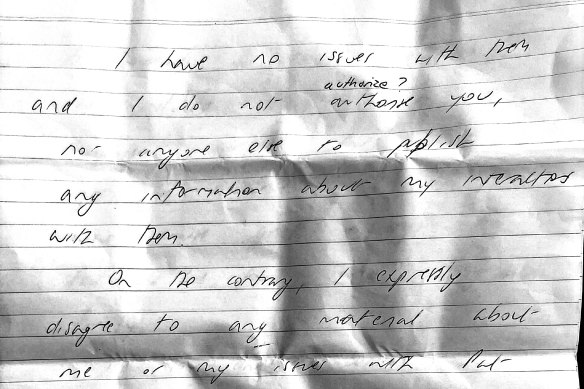 I have no issues with them
authorize?
and I do not authorise you,
nor anyone else to publish
any information about my interactions
with them.
On the contrary, I expressly
disagree to any material about
me or my issues with Pat